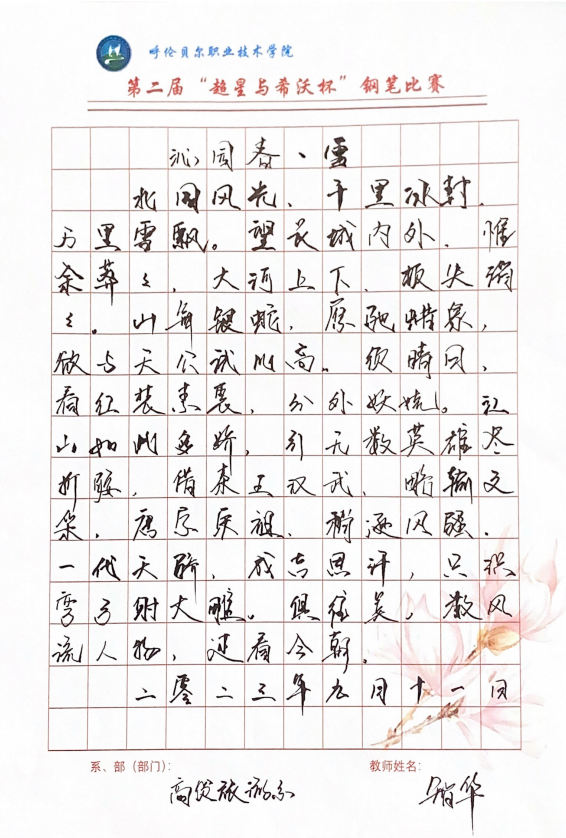 呼伦贝尔职业技术学院
第二届“超星与希沃杯”钢笔比赛
沁园春、雪
北国风光，千里冰封，
万里雪飘。望长城内外，惟
余莽々，大河上下，顿失滔
々。山舞银蛇，原驰蜡象，
欲与天公试比高。须晴日，
看红装素裹，分外妖娆。江
山如此多娇，引无数英雄尽
折腰，惜秦王汉武，略输文
采，唐宗宋祖，稍逊风骚。
一代天骄，成吉思汗，只识
弯弓射大雕。俱往矣，数风
流人物，还看今朝。
二零二三年九月十一日
系、部（部门）：
教师姓名：
商贸旅游系
华